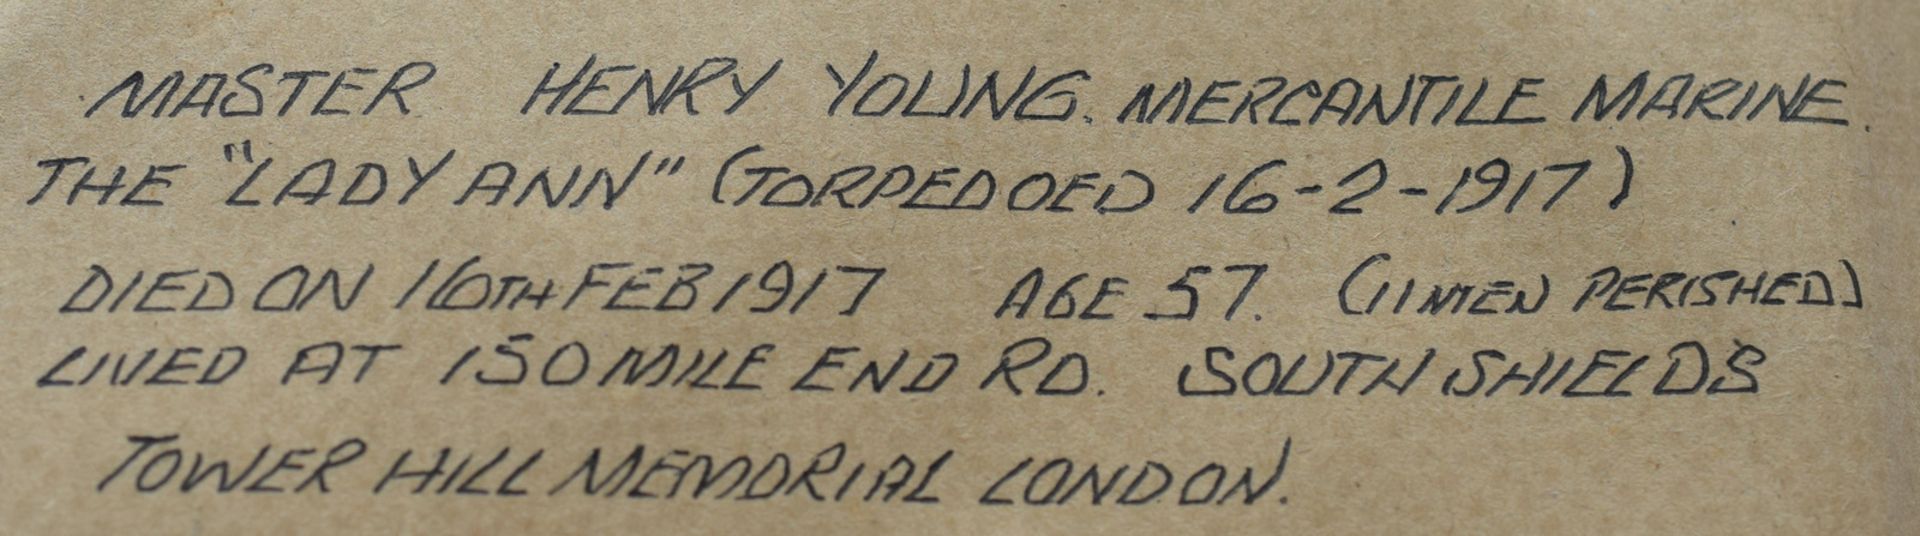 MASTER HENRY YOUNG. MERCANTILE MARINE.
THE "LADY ANN" (TORPEDOED 16-2-1917)
DIED ON 16TH FEB 1917 AGE 57. (11 MEN PERISHED)
LIVED AT 150 MILE END RD. SOUTH SHIELDS
TOWER HILL MEMORIAL LONDON.